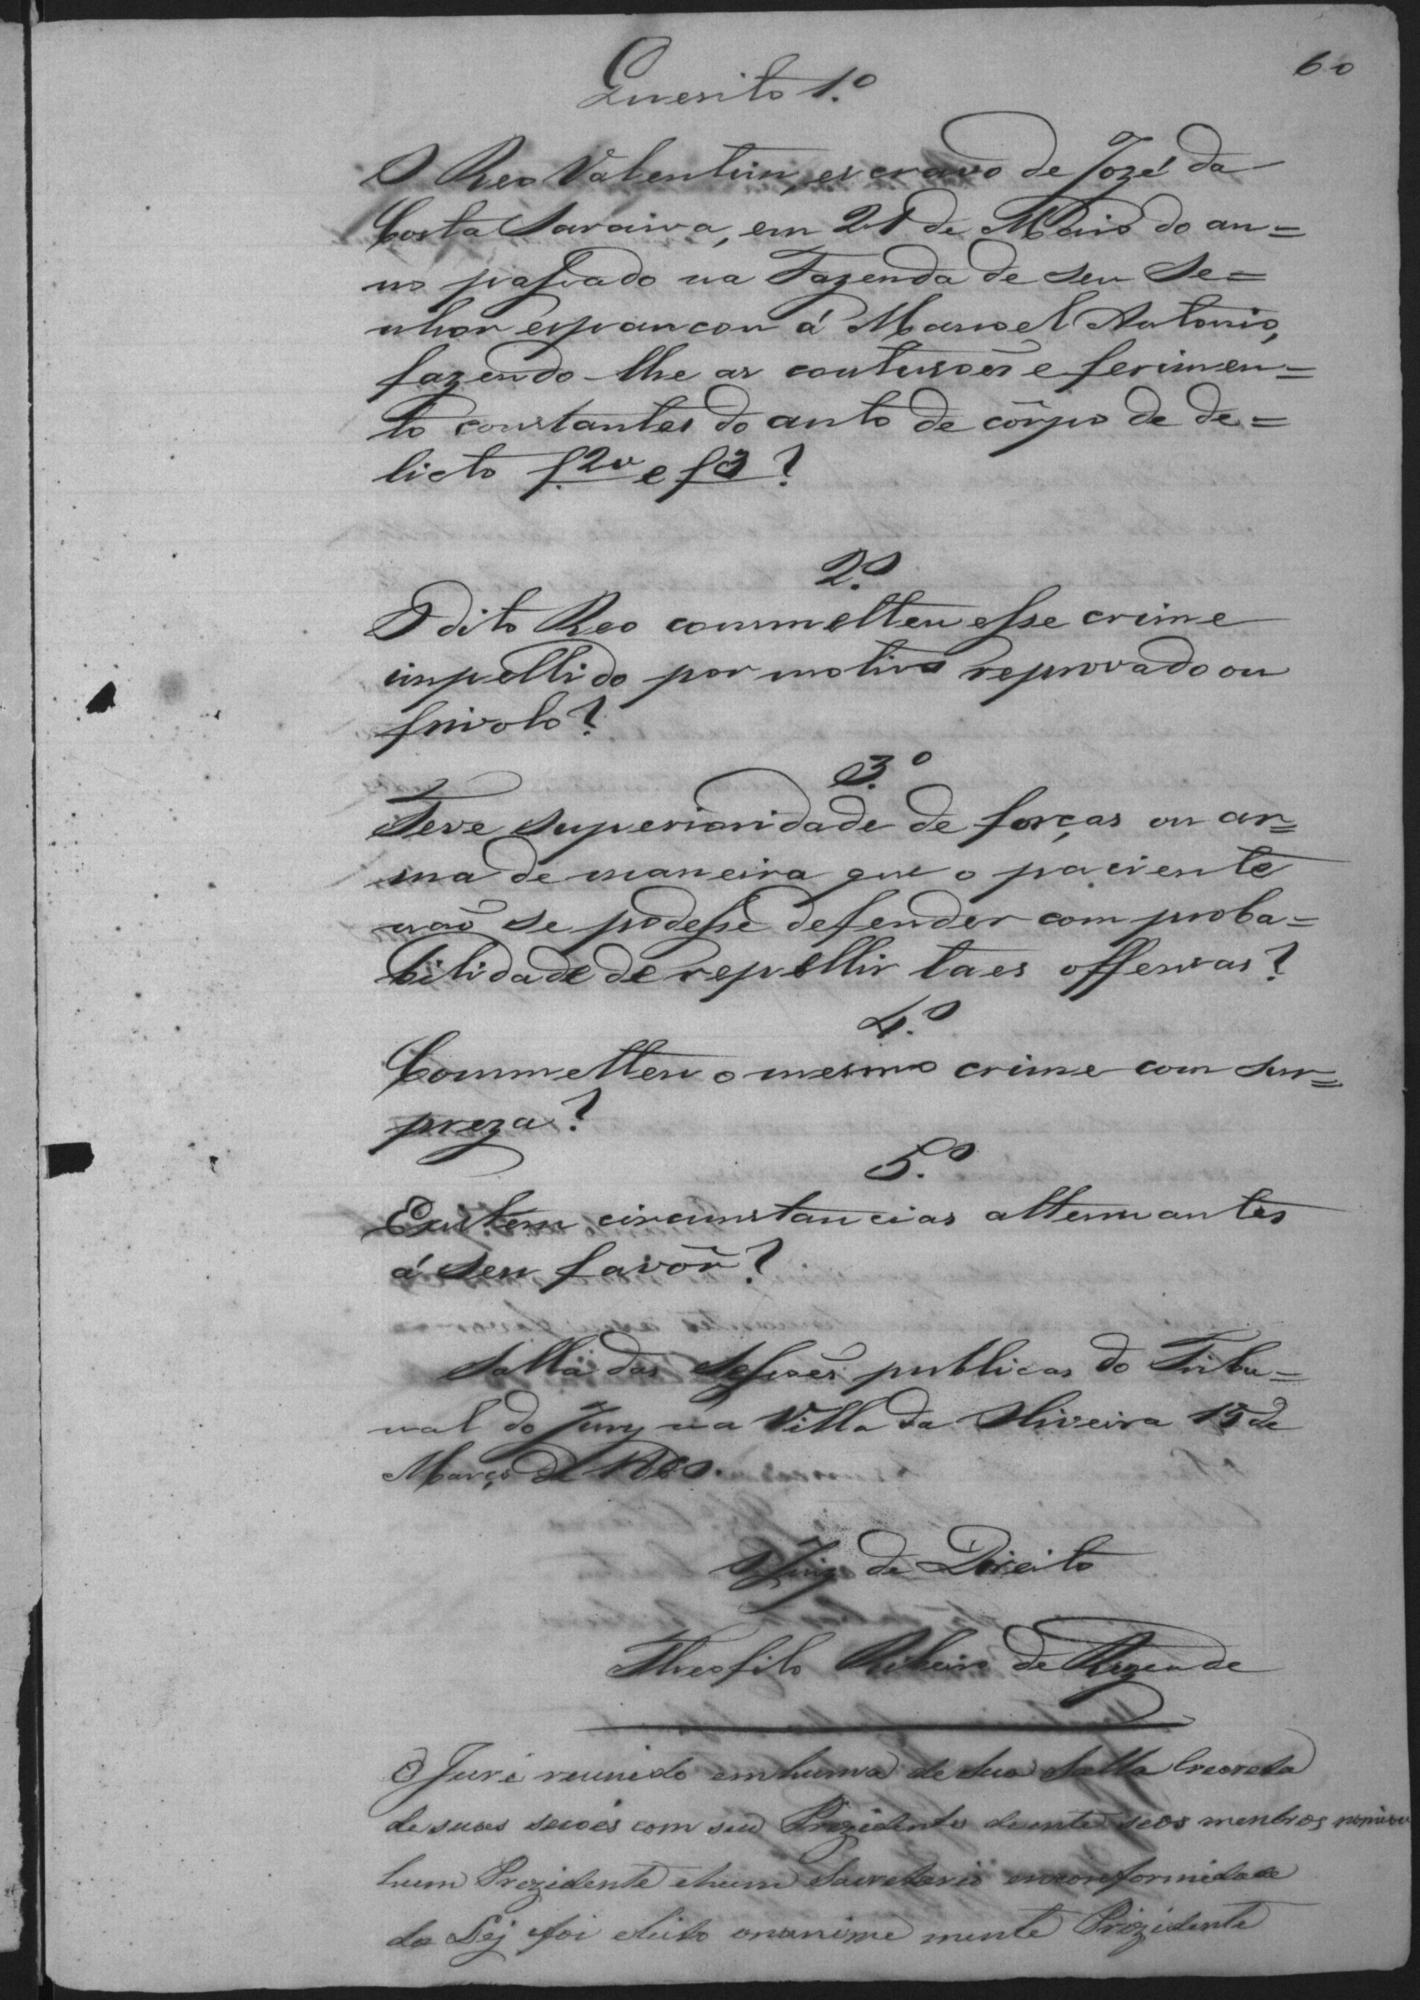 60
Quesito 1.º
O Reo Valentim, escravo de Jozé da
Costa Saraiva, em 21 de Maio do an=
no passado na Fazenda de seu Se=
nhor espancou á Manoel Antonio,
fazendo-lhe as contusoẽs e ferimen=
to constantes do auto de côrpo de de=
licto f. 2v e f 3?
2.º
O dito Reo commetteu esse crime
impellido por motivo reprovado ou
frivolo?
3.º
Teve superioridade de forças ou ar=
ma de maneira que o paciente
naõ se podesse defender com proba=
bilidade de repellir taes offensas?
4.º
Commetteu o mesmo crime com sur=
preza?
5.º
Existem circunstancias attenuantes
á seu favôr?
Salla das Sessoẽs publicas do Tribu=
nal do Jury na Villa da Oliveira 15 de
Março de 1860.
O Juiz de Direito
Theofilo Ribeiro de Rezende
O Juri reunido em huma de sua Salla Creoreta
de suas secoẽs com seu Prezidente d'entre seos menbros
hum Prezidente e hum Sacretario em comformidade
da Lej foi eleito ananime mente Prizidente